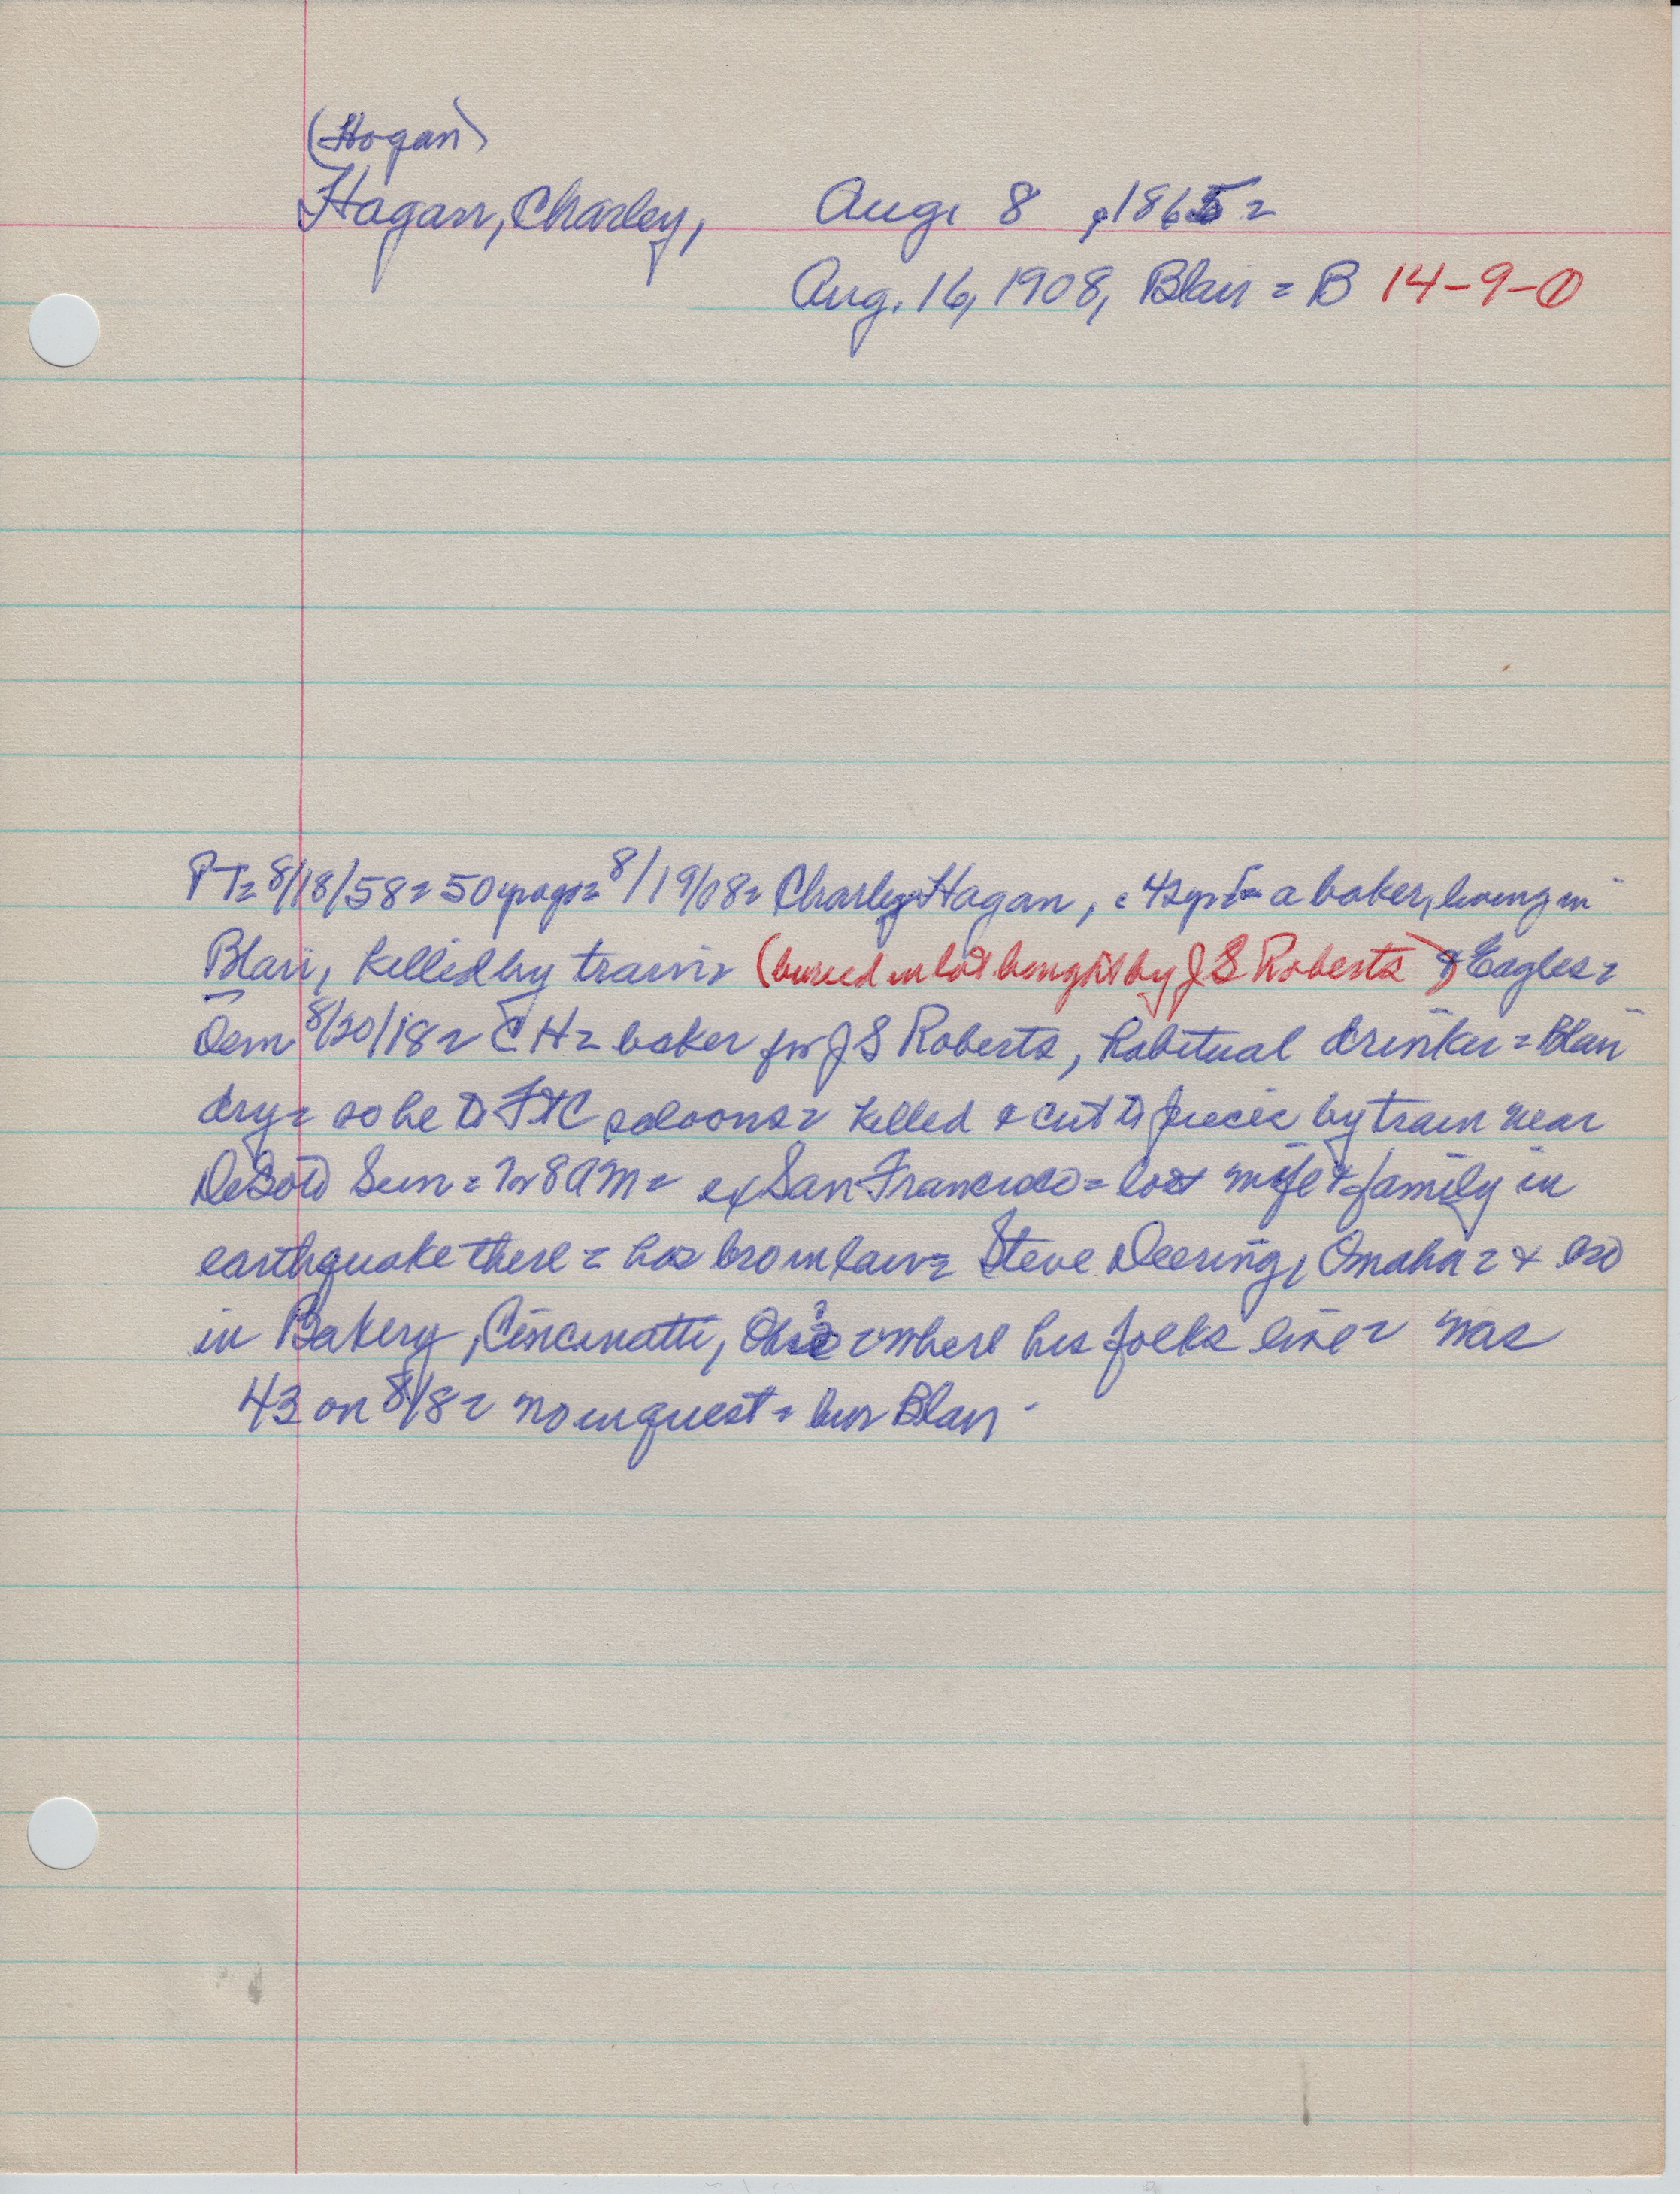 (Hogan)
Hagan, Charley, Aug. 8, 1865 =
Aug. 16, 1908, Blair = B 14-9-①
PT= 8/18/58= 50 yrs ago= 8/19/08= Charley Hagan, c 42 yrs= a baker, living in
Blair, killed by train= (buried in lot bought by J S Roberts) & Eagles=
Dem 8/20/18= C H= baker for J S Roberts, habitual drinker= Blair
dry= so he to FtC saloons= killed & cut to pieces by train near
DeSoto Sun= 7 or 8 AM= ex San Francisco= lost wife & family in
earthquake there= has bro in law= Steve Deering, Omaha= & bro
in Bakery, Cincinatti, Ohio= where his folks live= was
43 on 8/8= no inquest= bur Blair